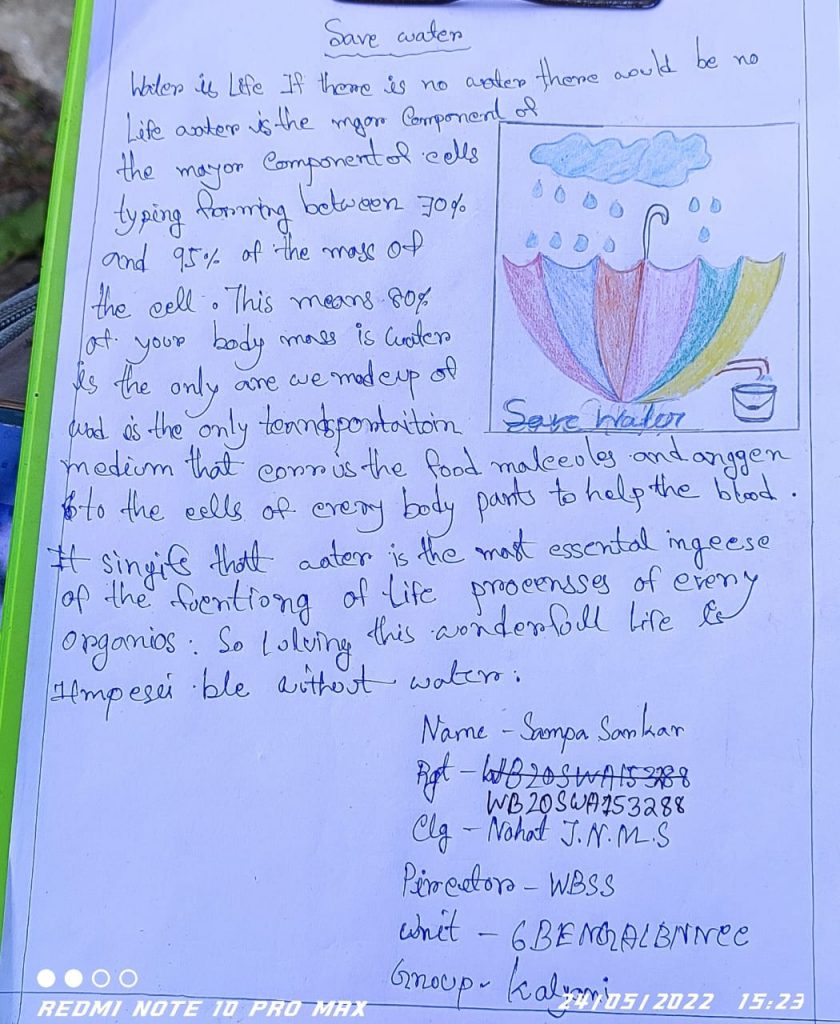 Save water
Water is Life If there is no water there would be no
Life water is the mgor Component of
the mayor Component of cells
typing forming between 70%
and 95% of the mass of
the cell. This means 80%
of your body mass is water
is the only are we made up of
and is the only
medium that the food and
to the cells of every body pants to help the blood.
It that water is the most essental
of the of Life of every
organios. So this wonderfull Life is
ble without water.
Save Water
Name - Sampa Sankar
Rgt - WB20SWA153288
WB20SWA153288
Clg - Nahat J.N.M.S
- WBSS
Unit - 6
Group - Kalyani
REDMI NOTE 10 PRO MAX
24/05/2022 15:23